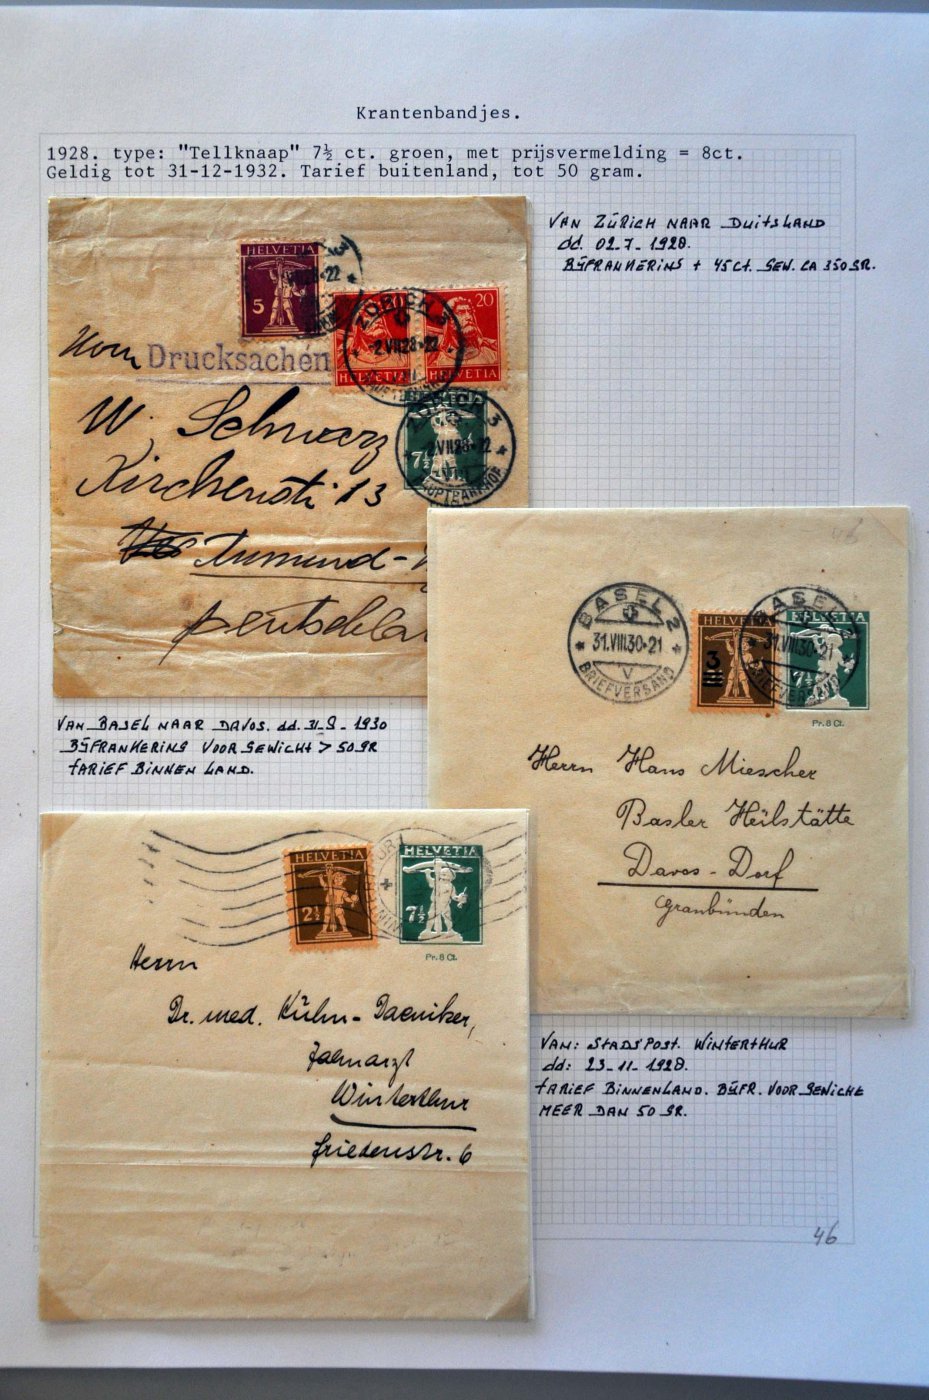 Krantenbandjes.
1928. type: "Tellknaap" 7½ ct. groen, met prijsvermelding = 8ct.
Geldig tot 31-12-1932. Tarief buitenland, tot 50 gram.
VAN ZÜRICH NAAR DUITSLAND
dd. 02-7-1928.
BŸFRANKERING + 45CT. GEW. CA 350 GR.
HELVETIA
5
Drucksachen
20
20
HELVETIA
HELVETIA
ZÜRICH 3
2.VII.28-22
HAUPTBAHNHOF
7½
ZÜRICH 3
2.VII.28-22
HAUPTBAHNHOF
W. Schwerz
Kirchenstr 13
Deutschla
46
BASEL 2
31.VIII.30-21
V
BRIEFVERSAND
HELVETIA
3
BASEL 2
31.VIII.30-21
BRIEFVERSAND
HELVETIA
7½
Pr. 8 Ct.
Herrn Hans Miescher
Basler Heilstätte
Davos-Dorf
Graubünden
VAN BASEL NAAR DAVOS. dd. 31-8-1930
BŸFRANKERING VOOR GEWICHT > 50 GR
TARIEF BINNENLAND.
HELVETIA
2½
HELVETIA
7½
Pr. 8 Ct.
Herrn
Dr. med. Kühn-Daeniker,
Zahnarzt
Winterthur
Friedenstr. 6
VAN: STADSPOST. WINTERTHUR
dd: 23-11-1928.
TARIEF BINNENLAND. BŸFR. VOOR GEWICHT
MEER DAN 50 GR.
46